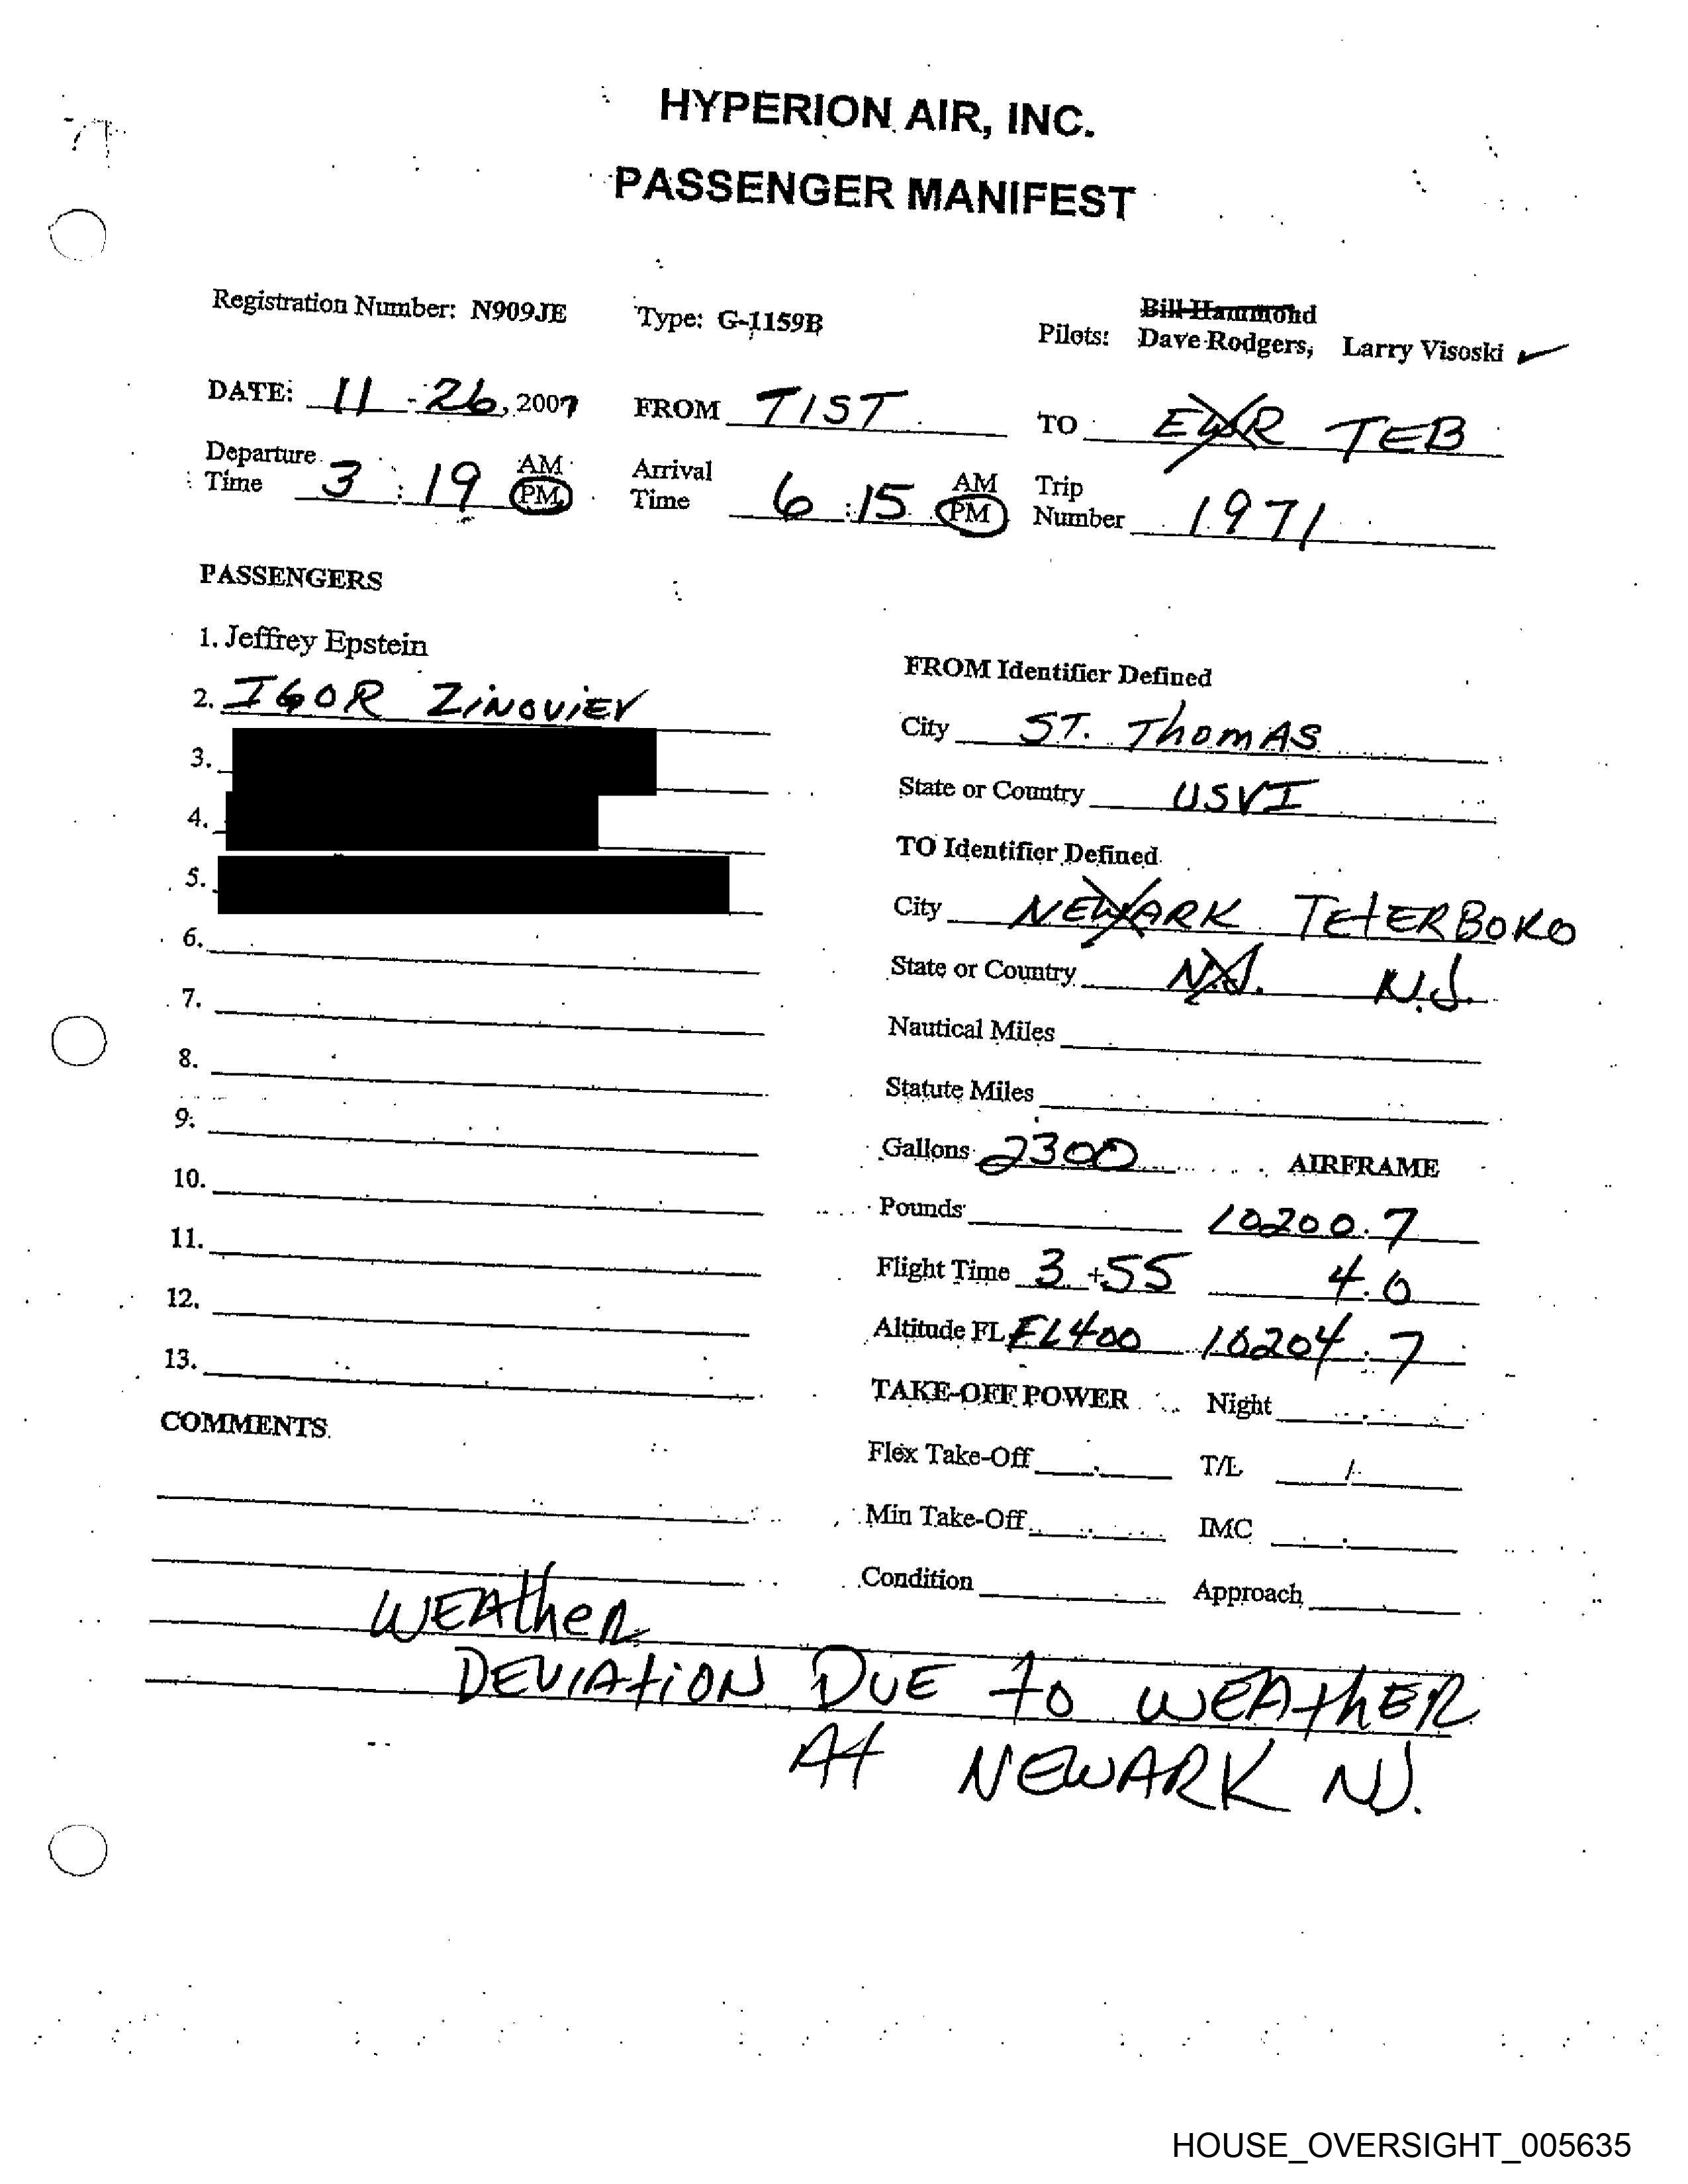 HYPERION AIR, INC.
PASSENGER MANIFEST
Registration Number: N909JE Type: G-1159B Pilots: Bill Hammond
Dave Rodgers, Larry Visoski
DATE: 11 - 26, 2007 FROM TIST TO EWR TEB
Departure Time 3 : 19 AM PM Arrival Time 6 : 15 AM PM Trip Number 1971
PASSENGERS
1. Jeffrey Epstein
FROM Identifier Defined
2. IGOR ZiNOViEV
City ST. ThomAS
3.
State or Country USVI
4.
TO Identifier Defined
5.
City NEWARK TEtERBORO
6.
State or Country N.J. N.J.
7.
Nautical Miles
8.
Statute Miles
9.
Gallons 2300 AIRFRAME
10.
Pounds 10200.7
11.
Flight Time 3 + 55 4.0
12.
Altitude FL FL400 10204.7
13.
TAKE-OFF POWER Night
COMMENTS
Flex Take-Off T/L /
Min Take-Off IMC
Condition Approach
WEAtheR
DEViAtiON DUE to WEAthER
At NEWARK NJ.
HOUSE_OVERSIGHT_005635